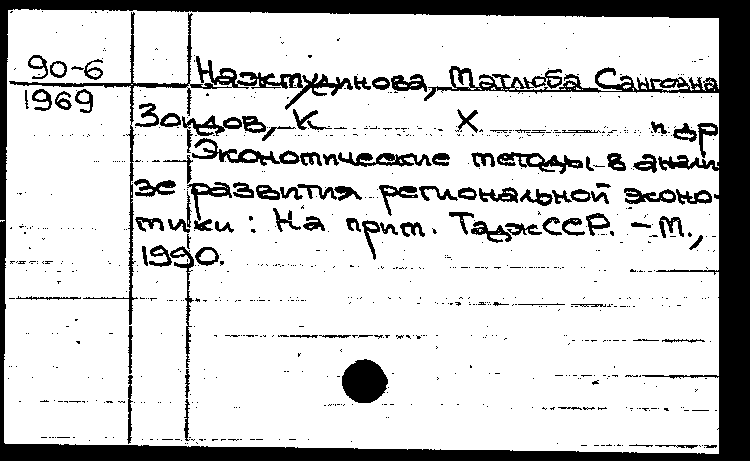 90-6
1969
Нажмудинова, Матлюба Саигозна
Зоидов, К Х и др
Экономические методы в анали
зе развития региональной эконо-
мики: На прим. ТаджССР. – М.,
1990.